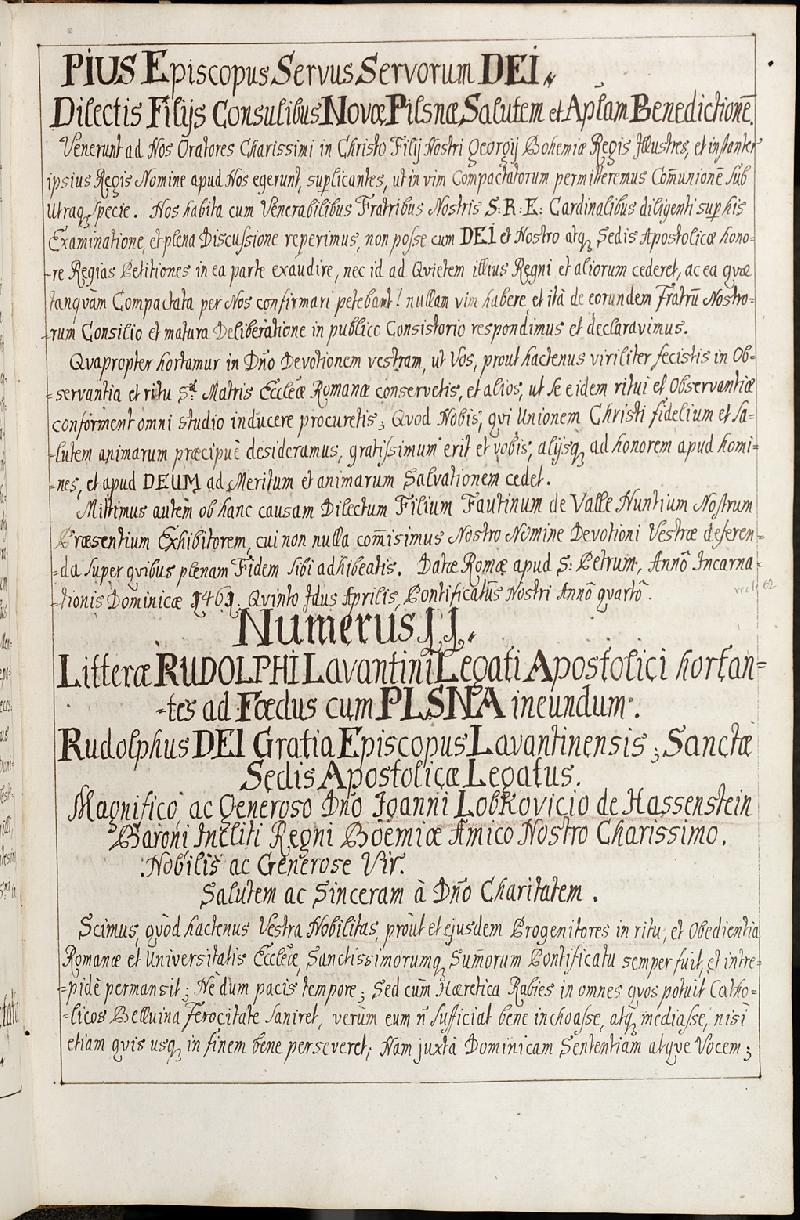 PIUS Episcopus Servus Servorum DEI.
Dilectis Filijs Consulibus Novæ Pilsnæ, Salutem et Apl̃am Benedictionẽ.
Venerunt ad Nos Oratores Charissimi in Christo Filij Nostri Georgij Bohemiæ Regis Illustres, et instanter
ipsius Regis Nomine apud Nos egerunt, suplicantes, ut in vim Compactatorum permitteremus Com̃unionẽ sub
Utraq, specie. Nos habita cum Venerabilibus Fratribus Nostris S: R: E: Cardinalibus diligenti sup his
Examinatione, et plena Discussione reperimus, non posse cum DEI et Nostro atq, Sedis Apostolicæ hono=
=re Regias Petitiones in ea parte exaudire, nec id ad Qvietem illius Regni et aliorum cederet, ac ea qvæ
tanqvàm Compactata per Nos confirmari petebant! nullam vim habere et ità de eorundem Fratrũ Nostro=
=rum Consilio et matura Deliberatione in publico Consistorio respondimus et declaravimus.
Qvapropter hortamur in Dño Devotionem vestram, ut Vos, prout hactenus viriliter fecistis in Ob=
=servantia et ritu S.æ Matris Eccl̃eæ Romanæ conservetis, et alios, ut se eidem ritui et Observantiæ
conforment omni studio inducere procuretis; Qvod Nobis, qvi Unionem Christi fidelium et sa=
=lutem animarum præcipuè desideramus, gratissimum erit et vobis, alijsq, ad honorem apud homi=
=nes, et apud DEUM ad Meritum et animarum Salvationem cedet.
Mittimus autem ob hanc causam Dilectum Filium Fautinum de Valle Nuntium Nostrum
Præsentium Exhibitorem, cui non nulla com̃isimus Nostro Nomine Devotioni Vestræ deferen=
=da super qvibus plenam Fidem sibi adhibeatis. Datæ Romæ apud S: Petrum, Annõ Incarna=
=tionis Dominicæ 1461. Qvinto Idus Aprilis, Pontificatûs Nostri Annõ qvartõ.
Numerus JJ.
Litteræ RUDOLPHI Lavantini Legati Apostolici hortan=
=tes ad Fœdus cum PLSNA ineundum.
Rudolphus DEI Gratia Episcopus Lavantinensis; Sanctæ
Sedis Apostolicæ Legatus.
Magnifico ac Generoso Dño Joanni Lobkovicio de Hassenstein
Baroni Incliti Regni Boemiæ Amico Nostro Charissimo.
Nobilis ac Generose Vir.
Salutem ac Sinceram à Dño Charitatem.
Scimus, qvòd hactenus Vestra Nobilitas, prout et ejusdem Progenitores in ritu, et Obedientia
Romanæ et Universitatis Eccl̃eæ, Sanctissimorumq, Sum̃orum Pontificatu semper fuit, et intre=
=pidè permansit; Ne dum pacis tempore; Sed cum Hæretica Rabies in omnes qvos potuit Catho=
=licos Belluina Ferocitate saniret, verum eum ñ sufficiat bene inchoasse, atq, mediasse, nisi
etiam qvis usq, in finem bene perseveret; Nam juxtà Dominicam Sententiam atqve Vocem;